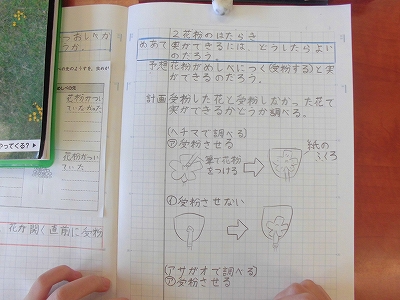 っおしべか
つか。
めしべの先
花粉がつい
ていた
花粉がつい
ていた
やってくる?
花が開く直前に受粉
2 花粉のはたらき
めあて 実ができるには、どうしたらよい
のだろう。
予想 花粉がめしべにつく(受粉する)と実
ができるのだろう。
計画 受粉した花と受粉しなかった花で
実ができるかどうか調べる。
(ヘチマで調べる)
㋐受粉させる
筆で花粉
をつける
紙の
ふくろ
㋑受粉させない
(アサガオで調べる)
㋐受粉させる